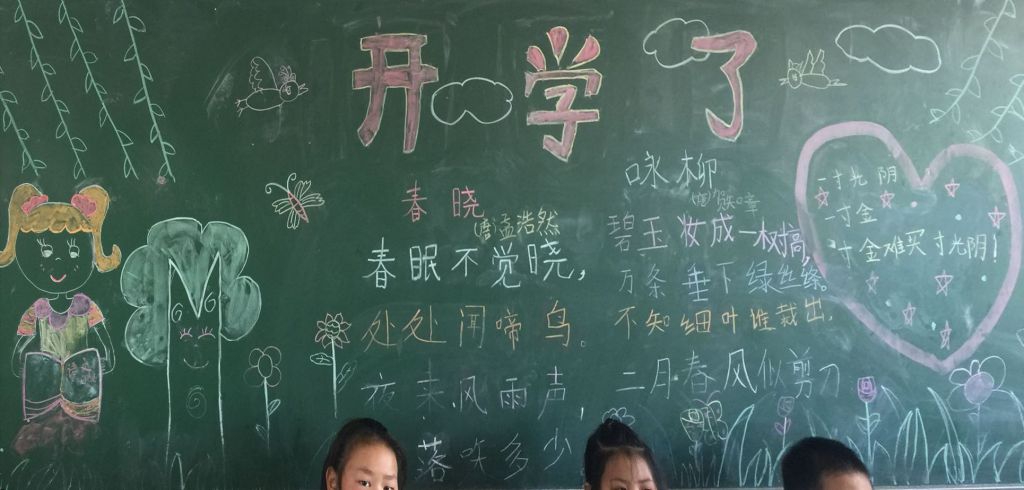 开学了
春晓
(唐)孟浩然
春眠不觉晓,
处处闻啼鸟。
夜来风雨声,
落
多少
咏柳
碧玉妆成一树高,
万条垂下绿丝绦。
不知细叶谁裁出,
二月春风似剪刀
一寸光阴
一寸金
寸金难买寸光阴!